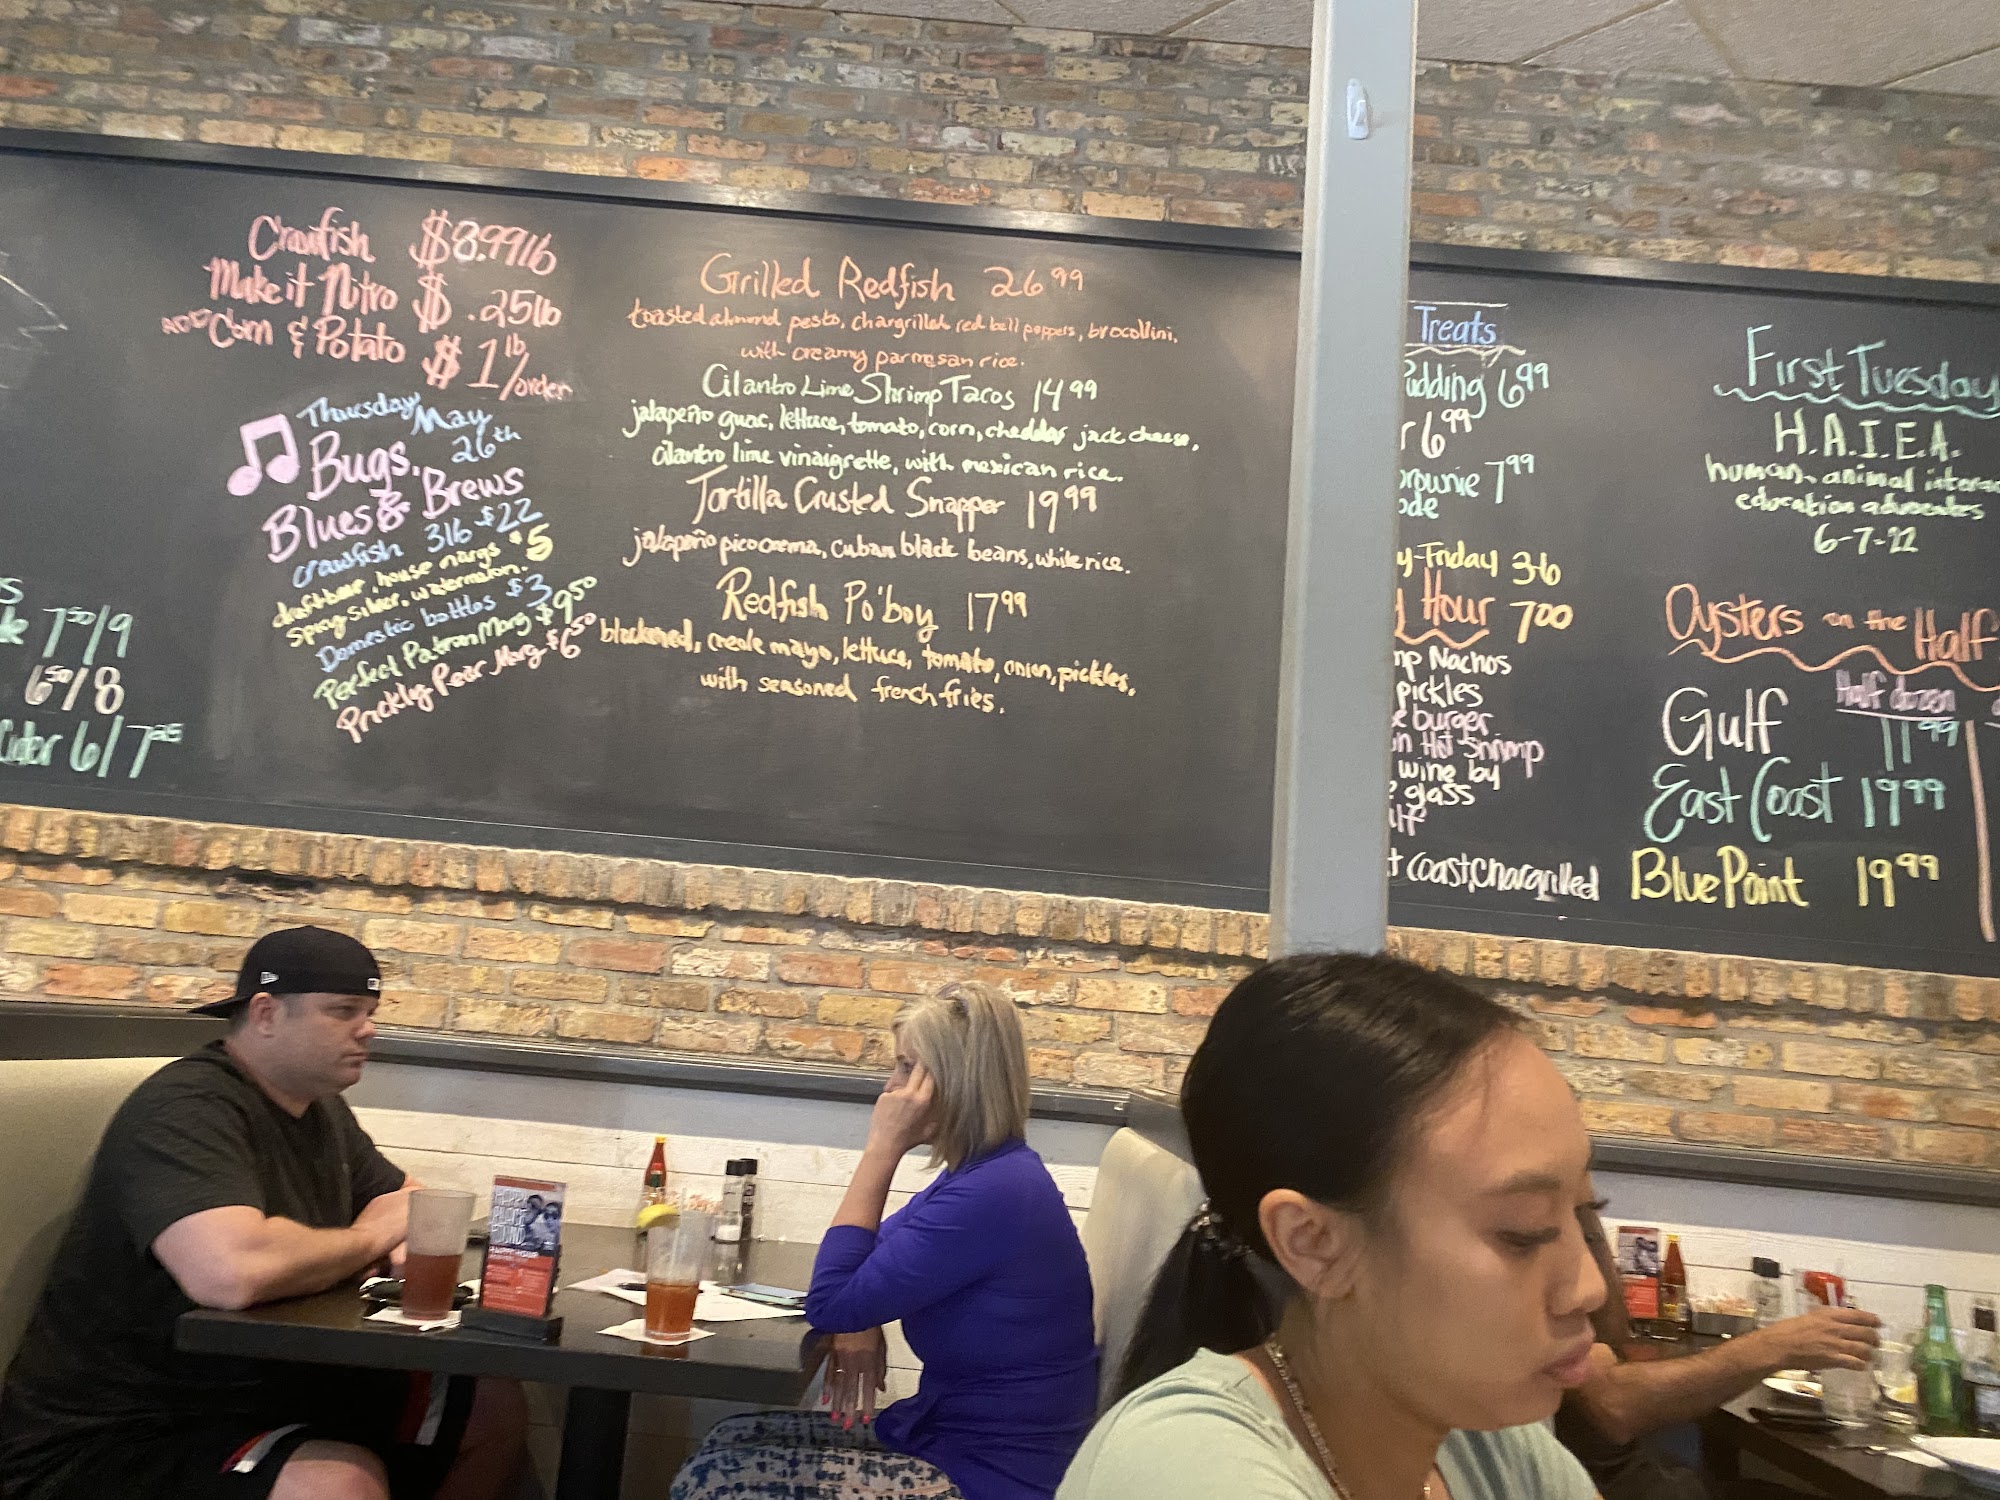 Crawfish $8.99lb
Make it Nitro $ .25lb
ADD Corn & Potato $1 lb/order
Thursday May 26th
Bugs,
Blues & Brews
crawfish 3lb $22
draft beer, house margs $5
Spicy silver, watermelon.
Domestic bottles $3
Perfect Patron Marg $9.50
Prickly Pear Marg $6.50
7.50/9
6.50/8
Cider 6/7.25
Grilled Redfish 26.99
toasted almond pesto, chargrilled red bell peppers, brocollini,
with creamy parmesan rice.
Cilantro Lime Shrimp Tacos 14.99
jalapeño guac, lettuce, tomato, corn, cheddar jack cheese,
cilantro lime vinaigrette, with mexican rice.
Tortilla Crusted Snapper 19.99
jalapeño pico crema, cuban black beans, white rice.
Redfish Po'boy 17.99
blackened, creole mayo, lettuce, tomato, onion, pickles,
with seasoned french fries.
Treats
udding 6.99
r 6.99
rownie 7.99
ode
y-Friday 3-6
Hour 7.00
mp Nachos
pickles
e burger
n Hot Shrimp
wine by
e glass
lf
t Coast, Chargrilled
First Tuesday
H.A.I.E.A.
human, animal interac
education advocates
6-7-22
Oysters on the Half
Half dozen
Gulf 11.99
East Coast 19.99
Blue Point 19.99